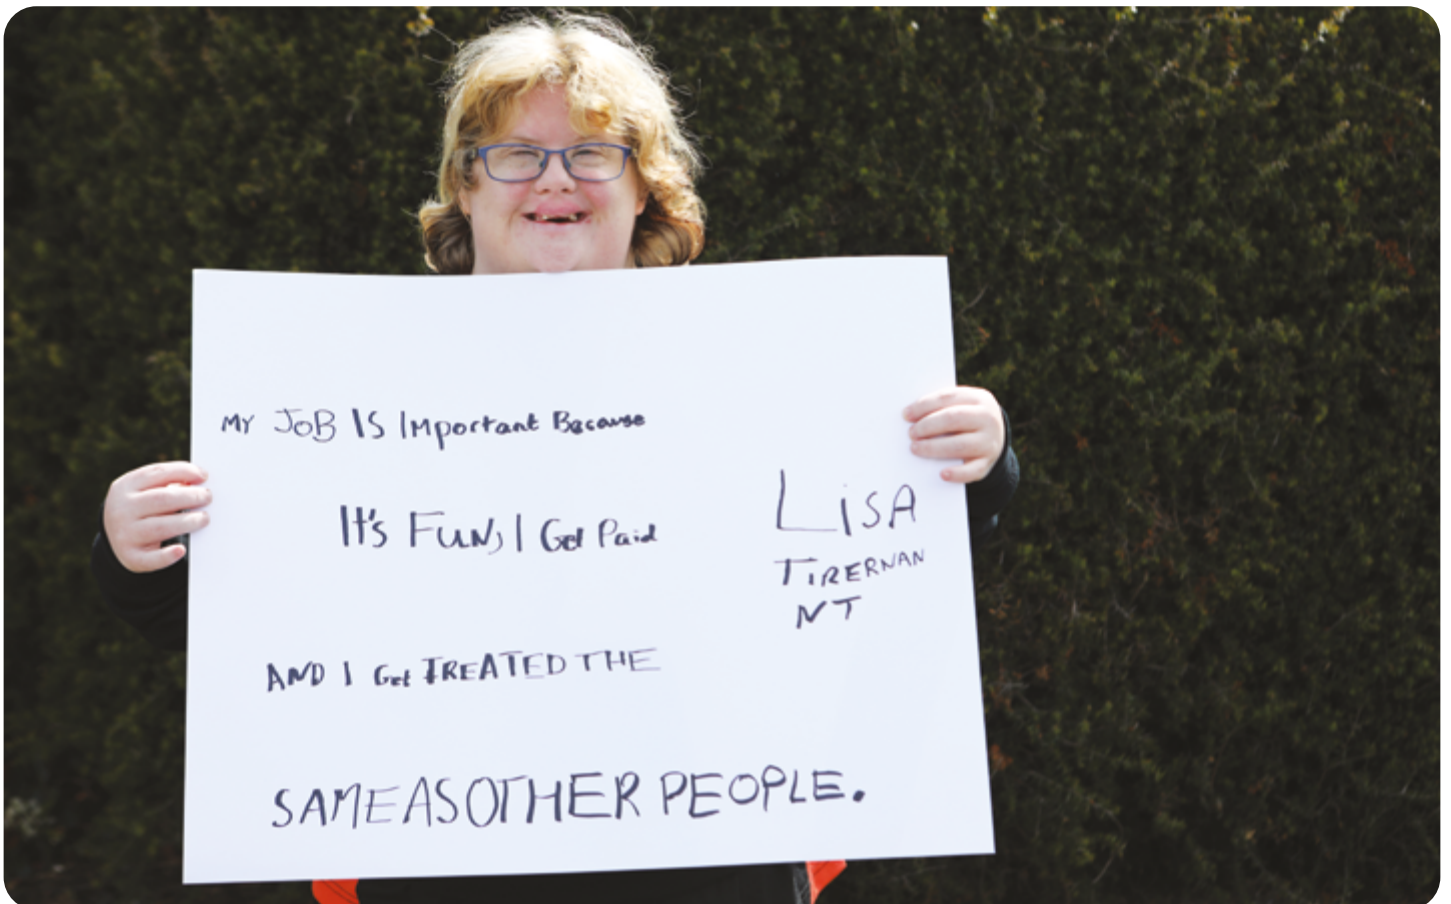 MY JOB IS Important Because
It's FUN, I Get Paid
AND I Get TREATED THE
SAME AS OTHER PEOPLE.
LiSA
TIRERNAN
NT